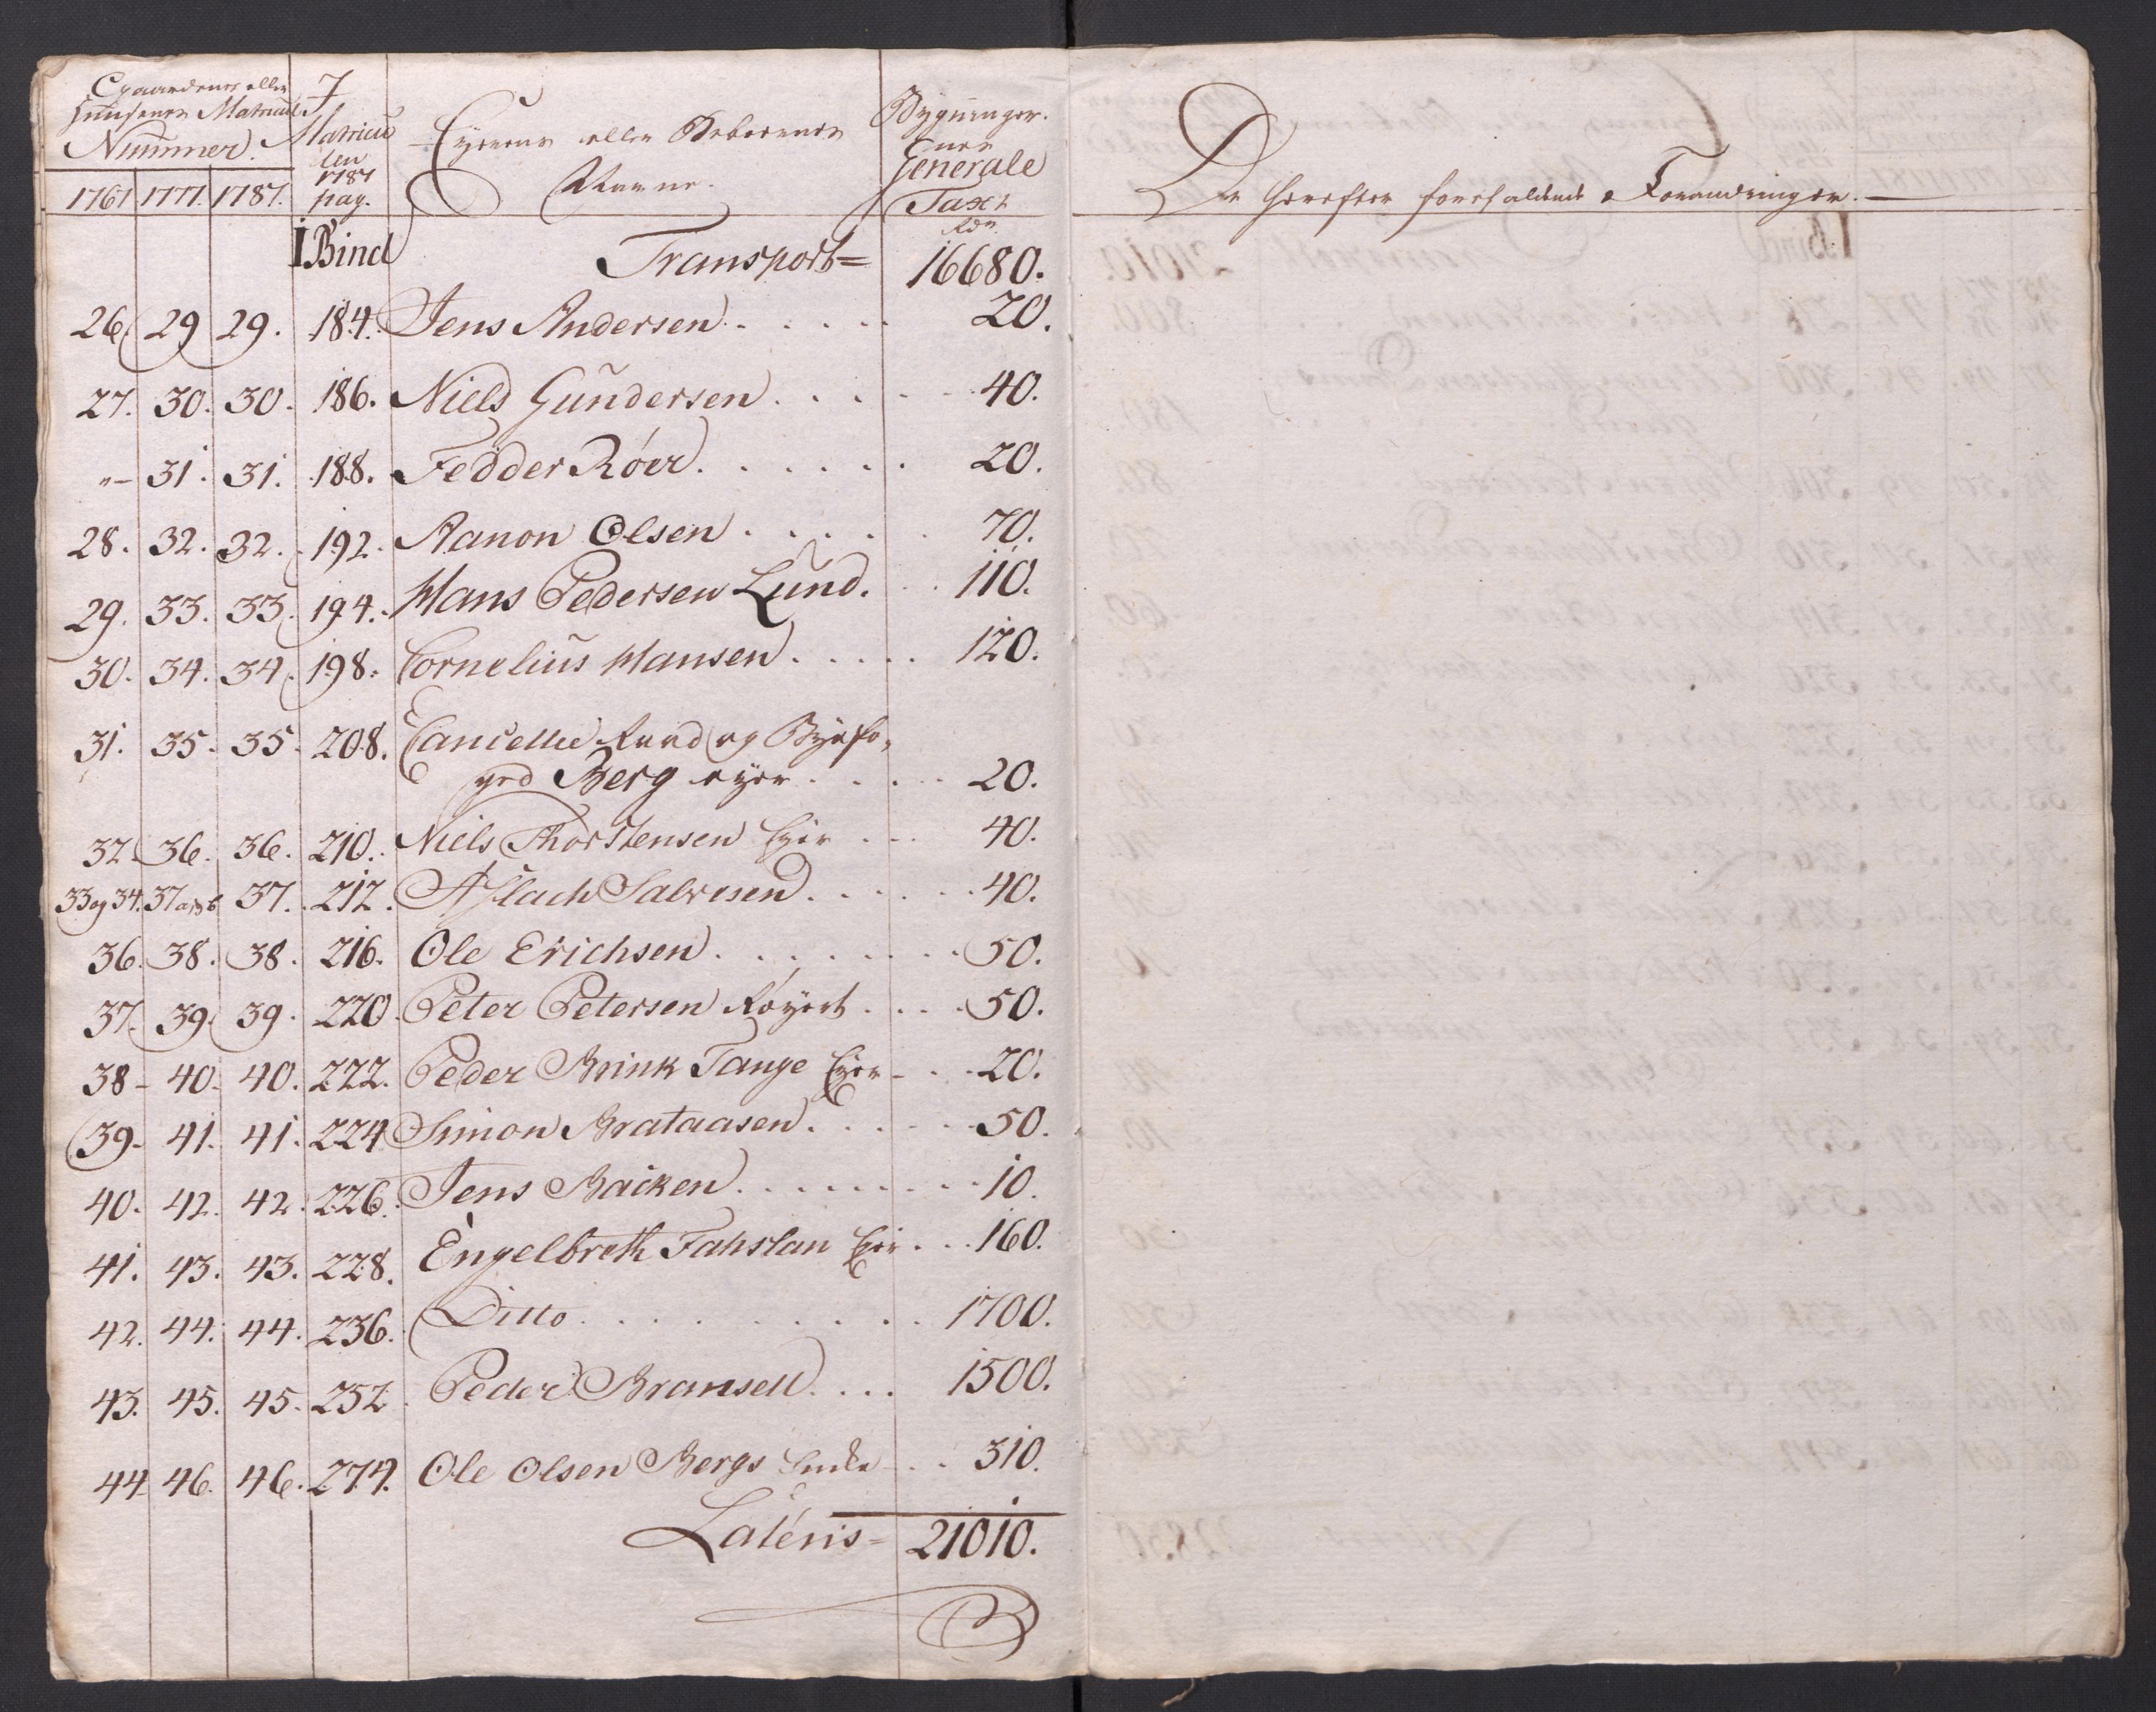 Gaardenes eller
Huusenes Matricul
Nummer.
1767 1777. 1787.
I
Matricu
len
1787
pag.
Eyerens eller Beboerens
Navne.
Bygninger
nes
Generale
Taxt
De herefter forefaldende Forandringer.
I Bind Transport= Rdr. 16680.
26. 29 29. 184. Jens Andersen. . . . . 20.
27. 30. 30. 186. Niels Gundersen. . . . 40.
"- 31. 31. 188. Fedder Röer. . . . . . 20.
28. 32. 32. 192. Aanon Olsen . . . . . 70.
29. 33. 33. 194. Hans Pedersen Lund. . . 110.
30. 34. 34. 198. Cornelius Hansen . . . . . 120.
31. 35. 35. 208. Cancellie Raad og Byefo,
ged Berg eyer . . . . 20.
32. 36. 36. 210. Niels Thorstensen Eyer . . . 40.
33 og 34. 37 a og b 37. 212. Aslach Salvesen . . . . . 40.
36. 38. 38. 216. Ole Erichsen . . . . . . . . 50.
37. 39. 39. 220. Peter Petersen Röyert . . . . 50.
38 - 40. 40. 222. Peder Brink Tange Eyer - . . 20.
39 - 41. 41. 224 Simon Brataasen. . . . . . 50.
40. 42. 42. 226. Jens Backen . . . . . . . . . 10.
41. 43. 43. 228. Engelbreth Fahslan Eyer . . . 160.
42. 44. 44. 236. Ditto . . . . . . . . . . 1700.
43. 45. 45. 252. Peder Bramsell . . . . 1500.
44 46. 46. 274. Ole Olsen Bergs Enke - . . 310.
Lateris = 21010.